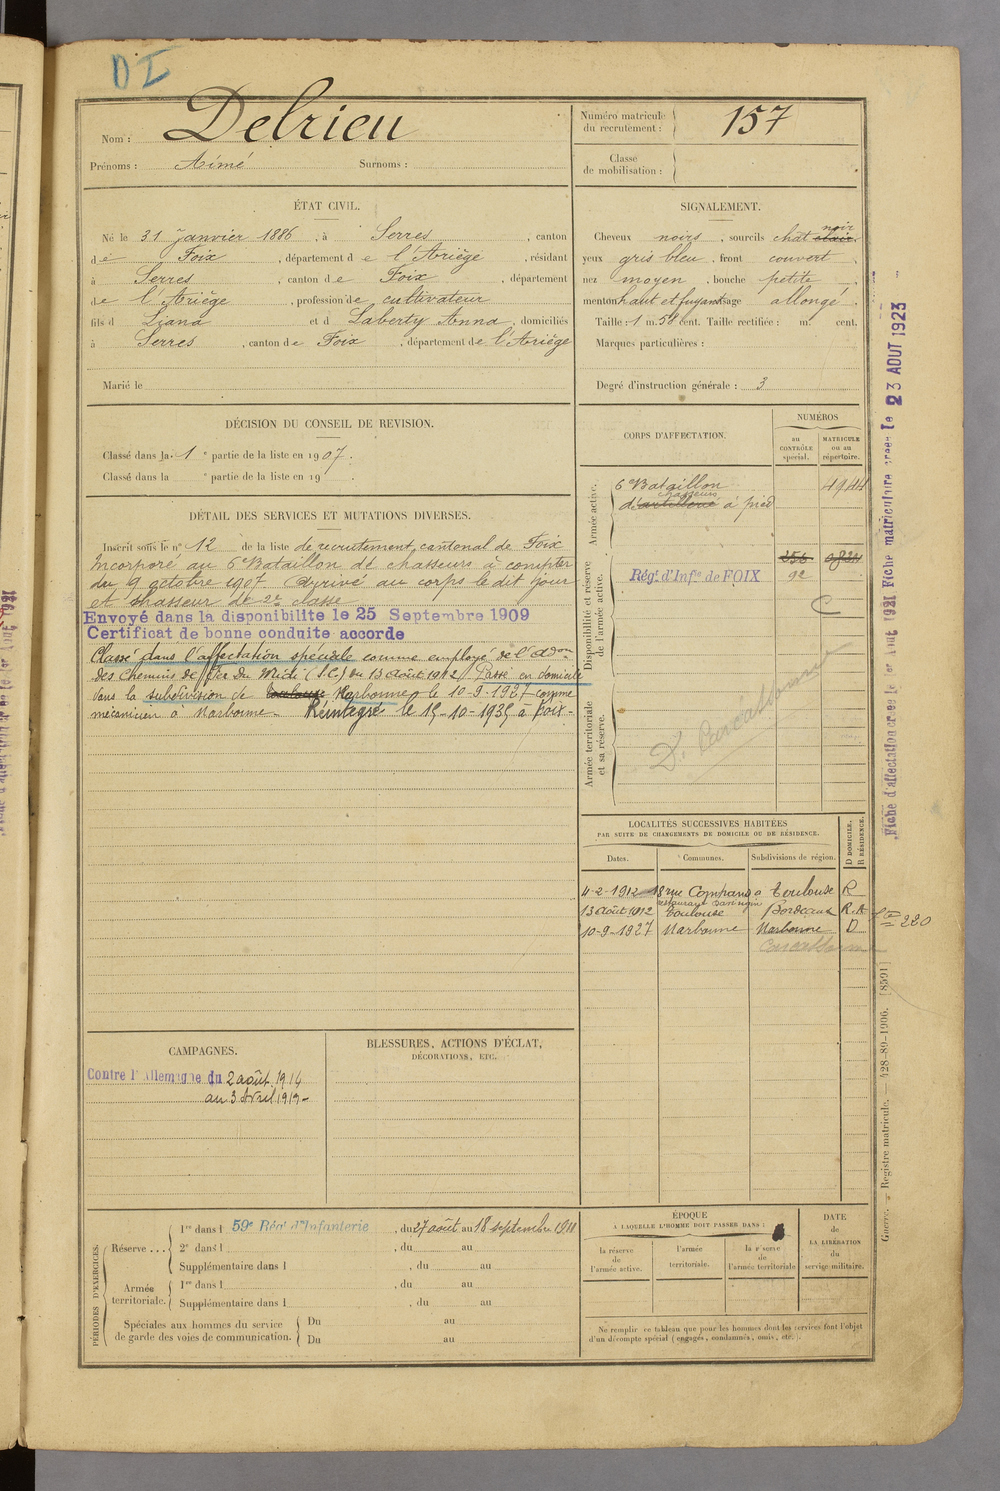 DI
Nom : Delrieu
Prénoms : Aimé Surnoms :
Numéro matricule du recrutement : 157
Classe de mobilisation :
ÉTAT CIVIL.
Né le 31 Janvier 1886, à Serres, canton
de Foix, département de l'Ariège, résidant
à Serres, canton de Foix, département
de l'Ariège, profession de cultivateur
fils d Liana et d Laberty Anna, domiciliés
à Serres, canton de Foix, département de l'Ariège
Marié le
SIGNALEMENT.
Cheveux noirs, sourcils chat noir
yeux gris bleu, front couvert
nez moyen, bouche petite
menton haut et fuyant visage allongé.
Taille : 1 m. 58 cent. Taille rectifiée : m. cent.
Marques particulières :
Degré d'instruction générale : 3
DÉCISION DU CONSEIL DE REVISION.
Classé dans la 1e partie de la liste en 1907.
Classé dans la e partie de la liste en 19
DÉTAIL DES SERVICES ET MUTATIONS DIVERSES.
Inscrit sous le n° 12 de la liste de recrutement cantonal de Foix
Incorporé au 6e Bataillon de chasseurs à compter
du 9 octobre 1907 Arrivé au corps le dit jour
et chasseur de 2e classe
Envoyé dans la disponibilite le 25 Septembre 1909
Certificat de bonne conduite accorde
Classé dans l'affectation spéciale comme employé de l'Adon
des Chemins de fer du Midi (S.C.) du 13 Août 1912 / Passé en domicile
dans la subdivision de Toulouse Narbonne le 10-9-1927 comme
mécanicien à Narbonne - Réintégré le 15-10-1935 à Foix -
CORPS D'AFFECTATION.
NUMÉROS
au CONTRÔLE spécial.
MATRICULE ou au répertoire.
Armée active.
6e Bataillon 4944
d'artillerie chasseurs à pied
Disponibilité et réserve de l'armée active.
Régt d'Infie de FOIX
92
C
Armée territoriale et sa réserve.
D. Carcassonne
LOCALITÉS SUCCESSIVES HABITÉES
PAR SUITE DE CHANGEMENTS DE DOMICILE OU DE RÉSIDENCE.
D DOMICILE.
R RÉSIDENCE.
Dates. Communes. Subdivisions de région.
4-2-1912 18 rue Compans à Toulouse R
13 Août 1912 Toulouse Bordeaux R.A
10-9-1927 Narbonne Narbonne D
Carcassonne
220
CAMPAGNES.
Contre l'Allemagne du 2 août 1914
au 3 Avril 1919 -
BLESSURES, ACTIONS D'ÉCLAT,
DÉCORATIONS, ETC.
PÉRIODES D'EXERCICES.
Réserve ...
1re dans l 59e Régt d'Infanterie, du 27 août au 18 septembre 1911
2e dans l , du au
Supplémentaire dans l , du au
Armée territoriale.
1re dans l , du au
Supplémentaire dans l , du au
Spéciales aux hommes du service de garde des voies de communication.
Du au
Du au
ÉPOQUE
À LAQUELLE L'HOMME DOIT PASSER DANS :
la réserve de l'armée active.
l'armée territoriale.
la réserve de l'armée territoriale
DATE de LA LIBÉRATION du service militaire.
Ne remplir ce tableau que pour les hommes dont les services font l'objet
d'un décompte spécial (engagés, condamnés, omis, etc.).
Fiche d'affectation créée le 1er Août 1921 Fiche matriculaire créée le 23 AOUT 1923
Guerre. — Registre matricule. — 428-89-1906. [8591]